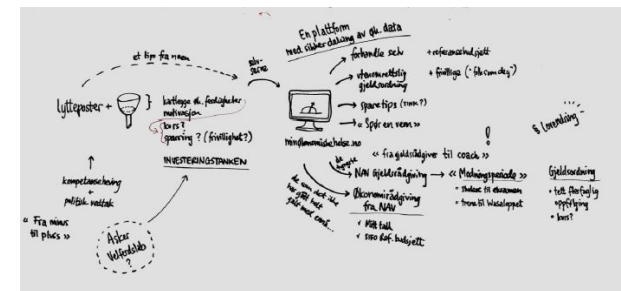 En plattform
med sikker deling av øk. data
et tips fra noen
selv-
lytteposter +
kartlegge øk. ferdigheter
motivasjon
kurs?
sparring? (frivillighet?)
INVESTERINGSTANKEN
kompetanseheving
+
politisk vedtak
« Fra minus
til pluss »
Asker
Velferdslab
?
minøkonomiskehelse.no
forhandle selv
+ referansebudsjett
utenomrettslig
gjeldsordning
+ frivillige ("
sparetips
« Spør en venn »
!
« fra gjeldsrådgiver til coach »
NAV Gjeldsrådgiving
« Modningsperiode »
Økonomirådgiving
fra NAV
• Mitt tall
• SIFO Ref. budsjett
de som
har
• student til eksamen
• trene til Vasaloppet
Gjeldsordning
• tett flerfaglig
oppfølging
• kurs?